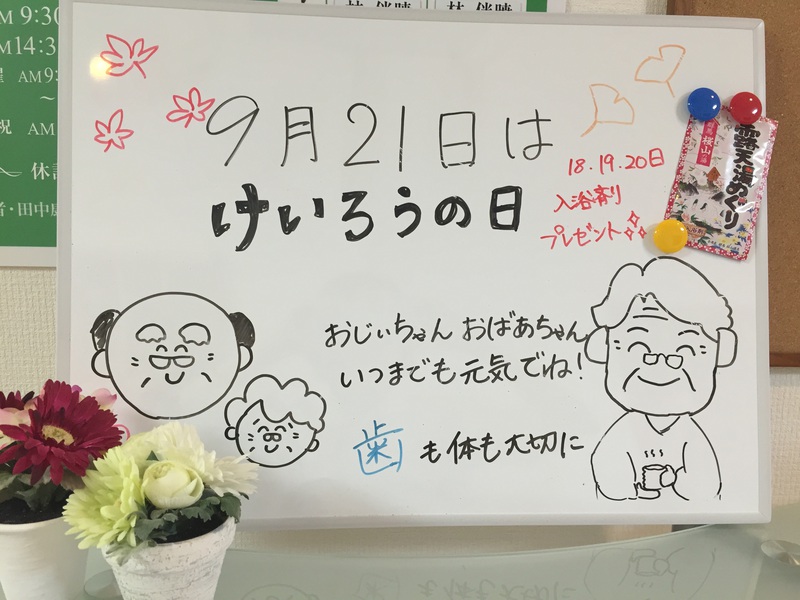 AM 9:30
AM14:3
AM9:
〜
祝 AM
〜 休
者・田中
9月21日は
けいろうの日
18.19.20日
入浴剤
プレゼント
露天湯めぐり
桜山
おじぃちゃん おばあちゃん
いつまでも元気でね!
歯も体も大切に